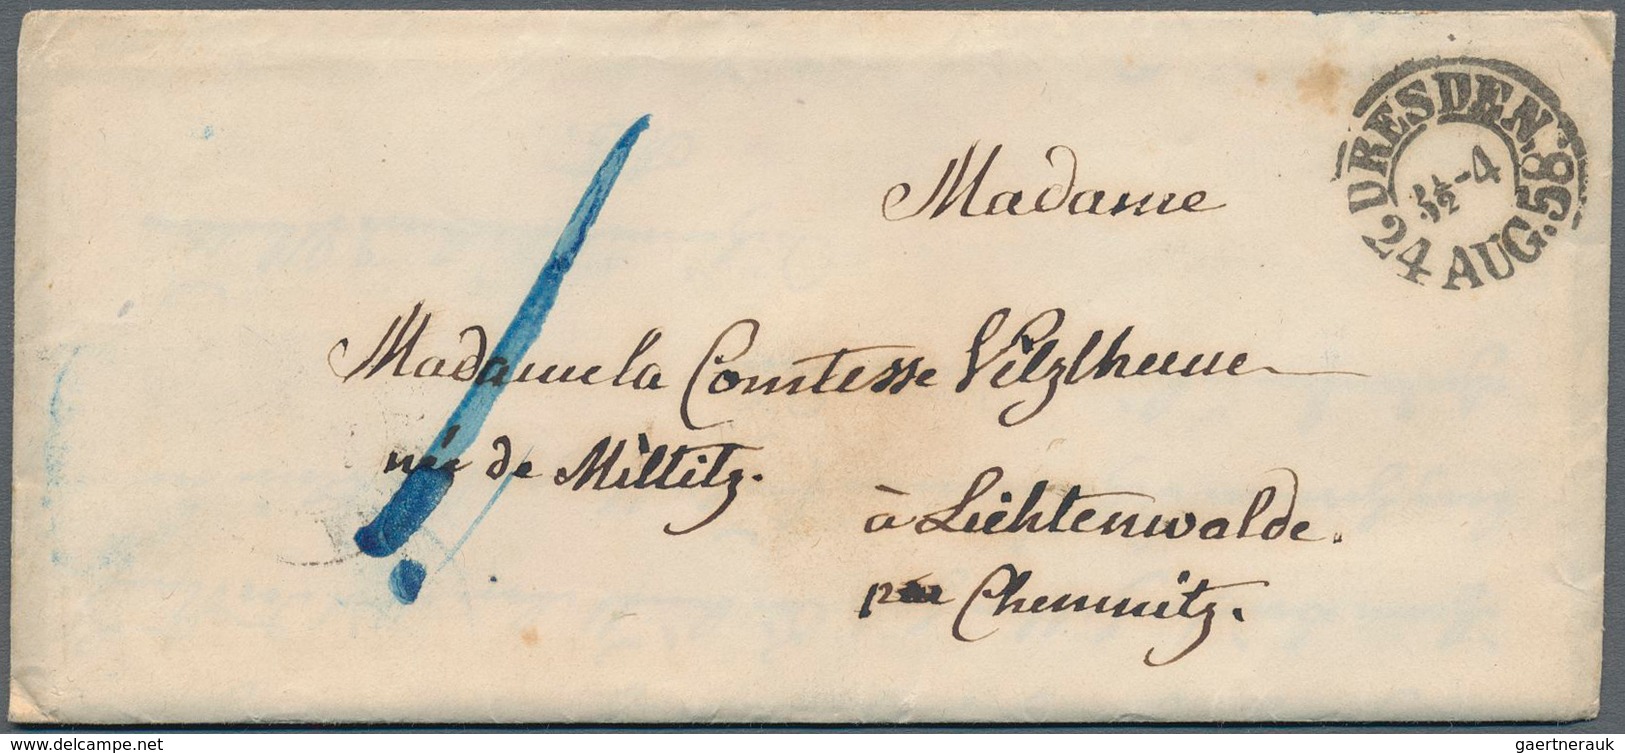 DRESDEN.
3½-4
24 AUG. 58.
Madame
Madame la Comtesse Vitzthum
née de Miltitz.
à Lichtenwalde.
par Chemnitz.
© www.delcampe.net
gaertnerauk